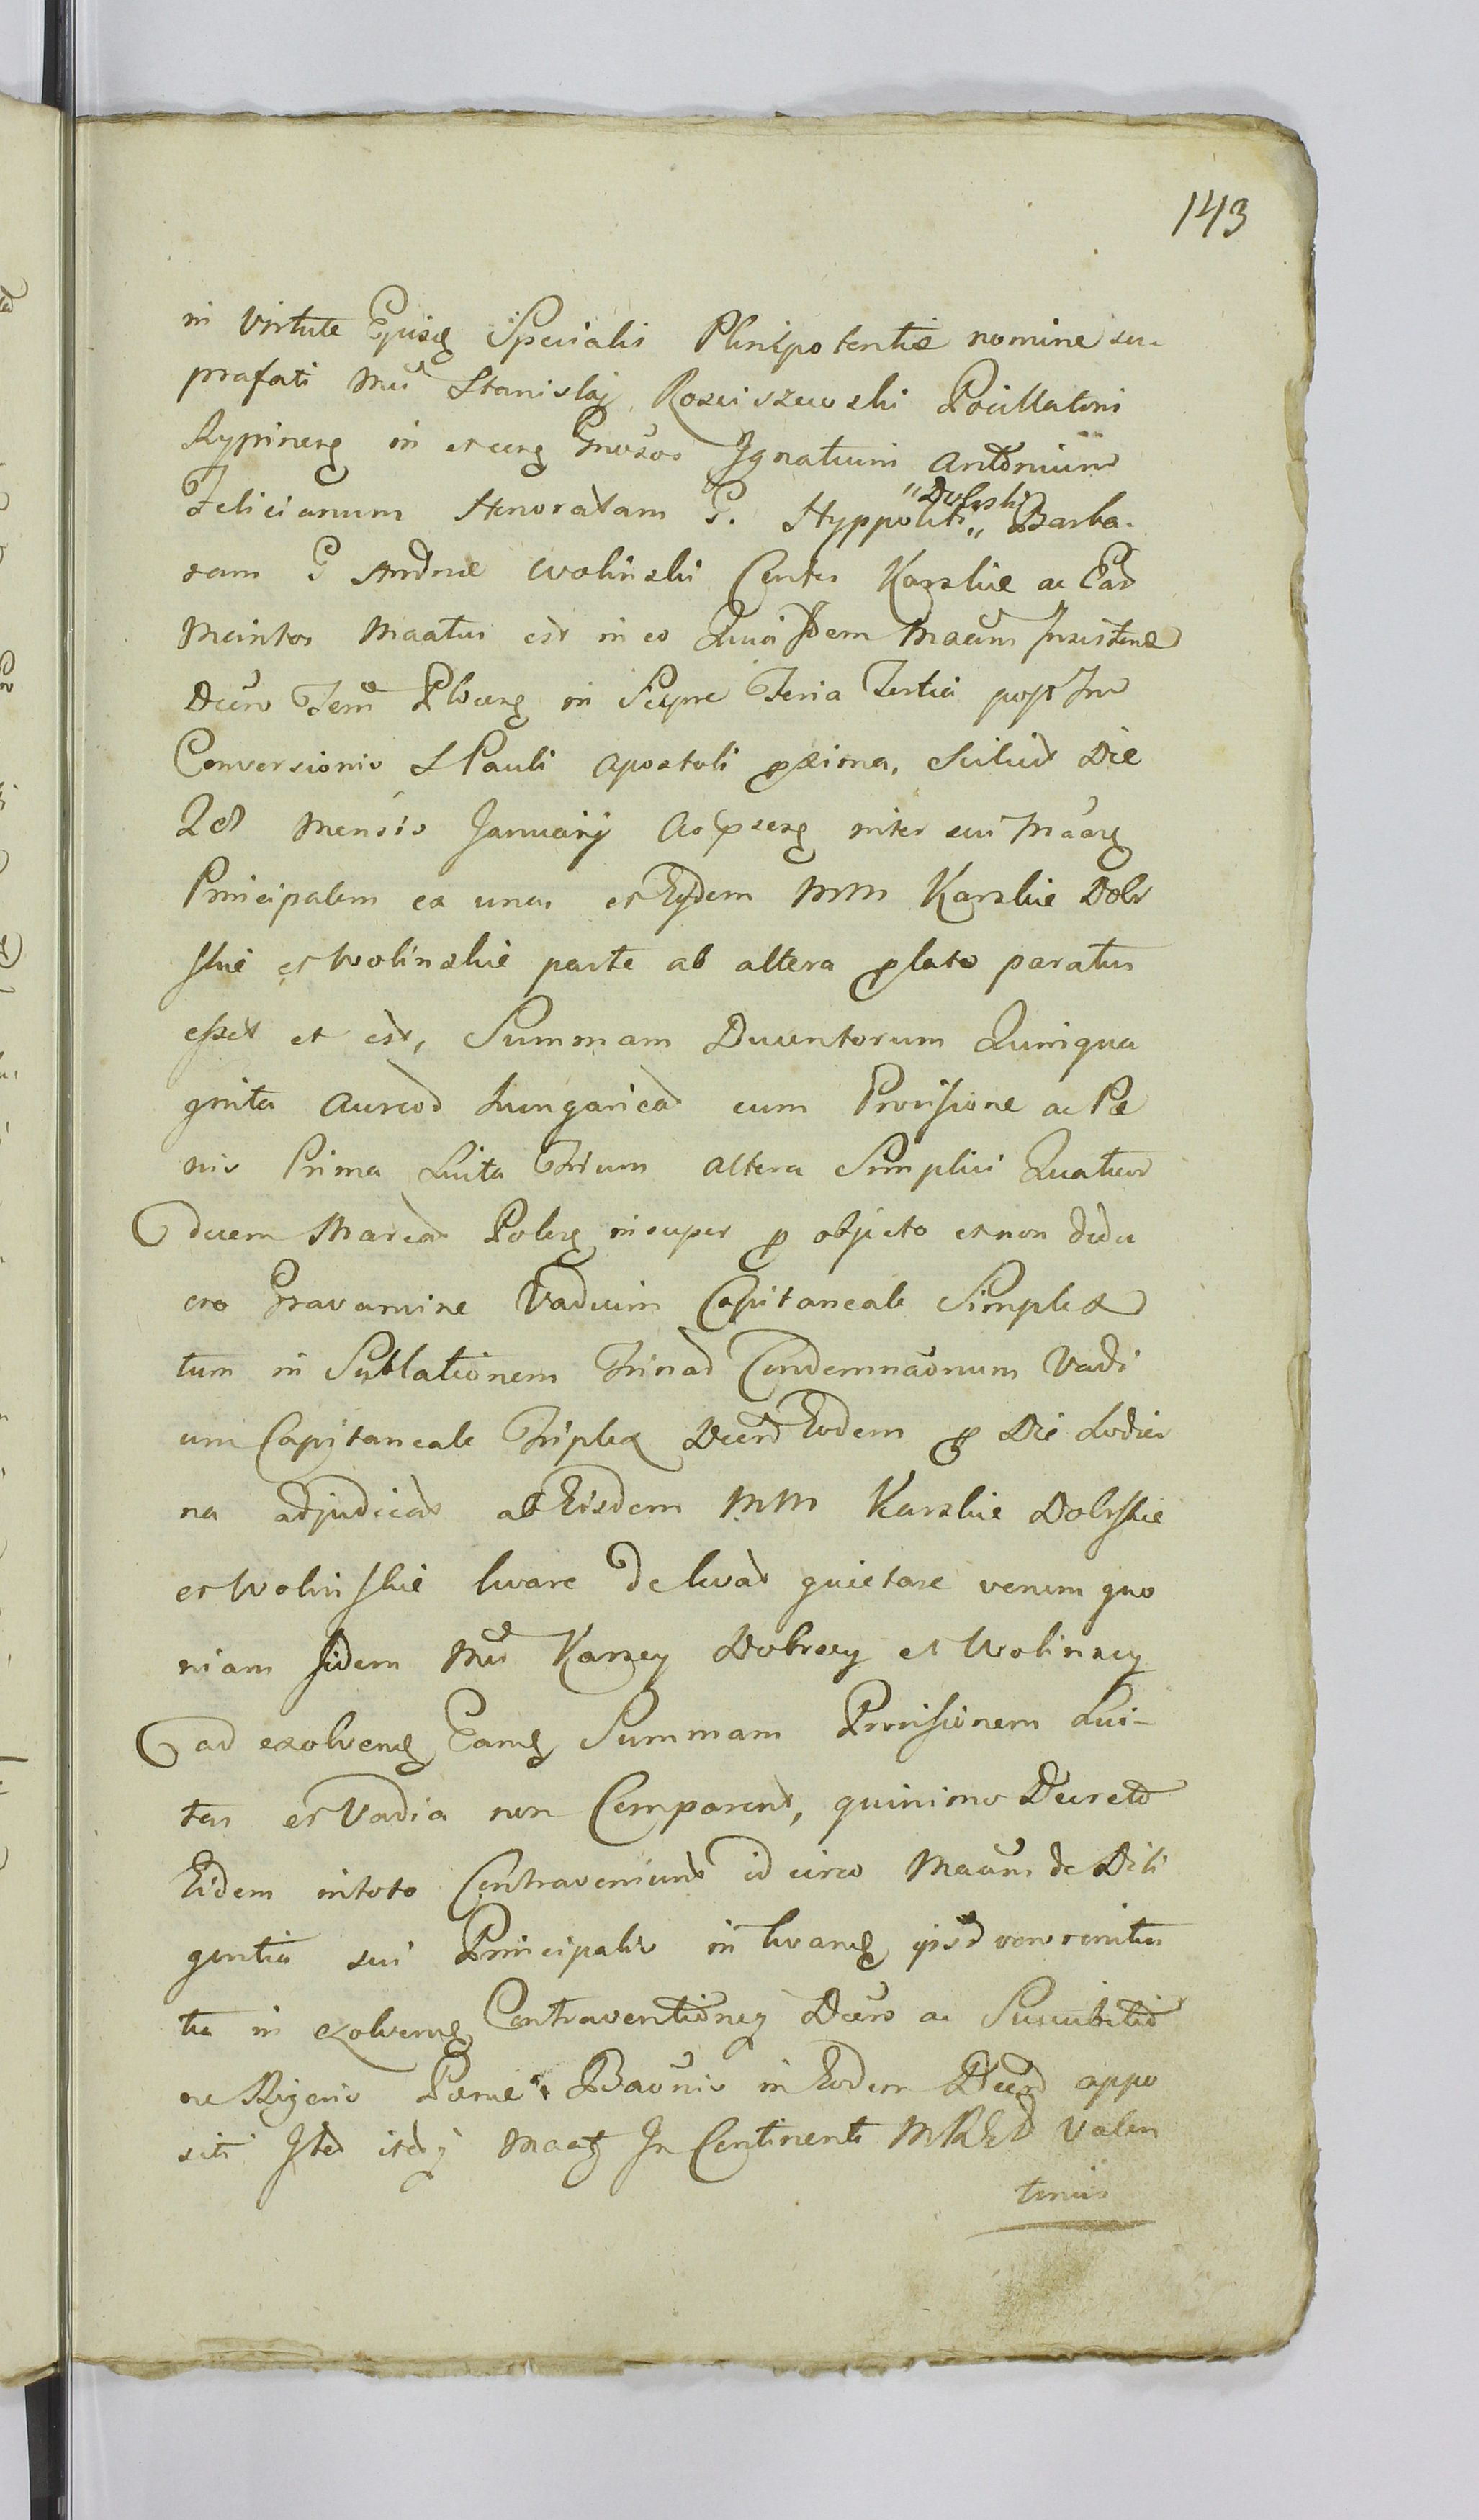 143
in Virtute Ejusq Specialis Plenipotentiæ nomine su-
prafati Mci Stanislai Rosciszewski Pocillatoris
Rypineng in et cerg Gnosos Ignatium Antonium
Felicianum Honoratam G. Hyppoliti "Dobrski" Barba-
ram G Andreæ Wolinski Contes Karskie ac Ead
Maritos Maatus est in eo Quia Idem Maans Insistend
Decro Terri Ploceng in Scepre Feria Tertia post Fm
Conversionis S Pauli Apostoli pxima, Scilicet Die
28 Mensis January Ao pseng inter sui Maang
Principalem ex una, et Eosdem MM Karskie Dobr
skie et Wolinskie parte ab altera plato paratus
esset et est, Summam Ducentorum Quinqua
ginta Aureod Hungaricad cum Provisione ac Pæ
nis Prima Luita Trium altera Simplici Quatuor
decem Marcad Poleng insuper p objecto et non dedu
cto Gravamine Vadium Capitaneale Simplex
tum in Sublationem Trinad Condemnaonum Vadi
um Capitaneale Triplex Decro Eodem p Die Hodier
na adjudicat ab Eisdem MM Karskie Dobrskie
et Wolinskie levare De levat quietare verum quo
niam Iidem MM Karscy Dobrscy et Wolinscy
ad exolveng Eamq Summam Provisionem Lui-
tas et Vadia non Comparent, quinimo Decreto
Eidem intoto Contraveniunt id circo Maans de Dili
gentia sui Principalis in levang ipisd vero reniten
tia in exolveng Contraventioneq Decro ac Succubitio
ne Rigoris Pænæ Baonis in Eodem Decro appo
siti Ited itedq Maatq In Continenti MRGD Valen
tinus